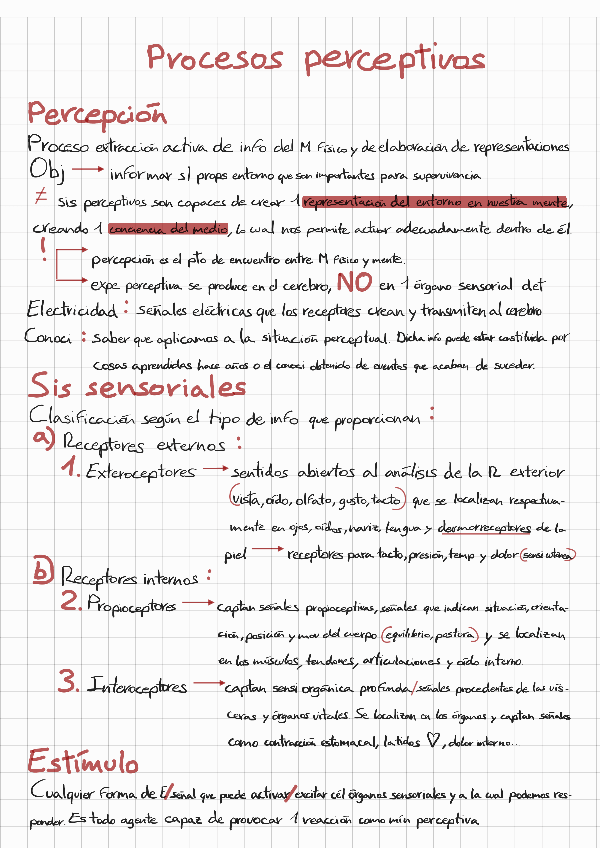 Procesos perceptivos
Percepción
Proceso extracción activa de info del M Físico y de elaboración de representaciones
Obj → informar s/ props entorno que son importantes para supervivencia
≠ Sis perceptivos son capaces de crear 1 representación del entorno en nuestra mente,
creando 1 conciencia del medio, lo cual nos permite activar adecuadamente dentro de él
! → percepción es el pto de encuentro entre M Físico y mente.
→ expe perceptiva se produce en el cerebro, NO en 1 órgano sensorial det
Electricidad : señales eléctricas que los receptores crean y transmiten al cerebro
Conoci : Saber que aplicamos a la situación perceptual. Dicha info puede estar constituida por
cosas aprendidas hace años o el conoci obtenido de eventos que acaban de suceder.
Sis sensoriales
Clasificación según el tipo de info que proporcionan :
a) Receptores externos :
1. Exteroceptores → sentidos abiertos al análisis de la R exterior
(vista, oído, olfato, gusto, tacto) que se localizan respectiva-
mente en ojos, oídos, nariz, lengua y dermorreceptores de la
piel → receptores para tacto, presión, temp y dolor (sensi cutánea)
b) Receptores internos :
2. Propioceptores → captan señales propioceptivas, señales que indican situación, orienta-
ción, posición y mov del cuerpo (equilibrio, postura) y se localizan
en los músculos, tendones, articulaciones y oído interno.
3. Interoceptores → captan sensi orgánica profunda/señales procedentes de las vís-
ceras y órganos vitales. Se localizan en los órganos y captan señales
como contracción estomacal, latidos ♡, dolor interno...
Estímulo
Cualquier forma de E/señal que puede activar/excitar cél órganos sensoriales y a la cual podemos res-
ponder. Es todo agente capaz de provocar 1 reacción como mín perceptiva